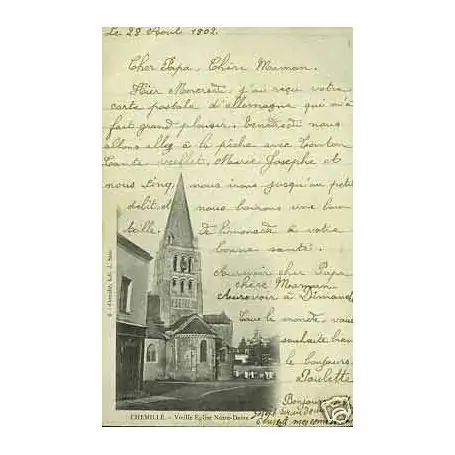 Le 28 Août 1902.
Cher Papa, Chère Maman.
Hier Mercredi, j'au reçu votre
carte postale d'allemagne qui m'a
fait grand plaisir. Vendredi nous
allons allez à la pêche avec Tonton
Tante Marie Josephe et
nous nous irons jusqu'au petit
debit et nous boirons une bou
teille. de limonade à votre
bonne santé.
Aurevoir cher Papa
chère Maman
Aurevoir à Dimanch
Tout le monde, vous
souhaite bien
le bonjours.
Paulette
Bonjours
CHEMILLÉ. - Vieille Eglise Notre-Dame